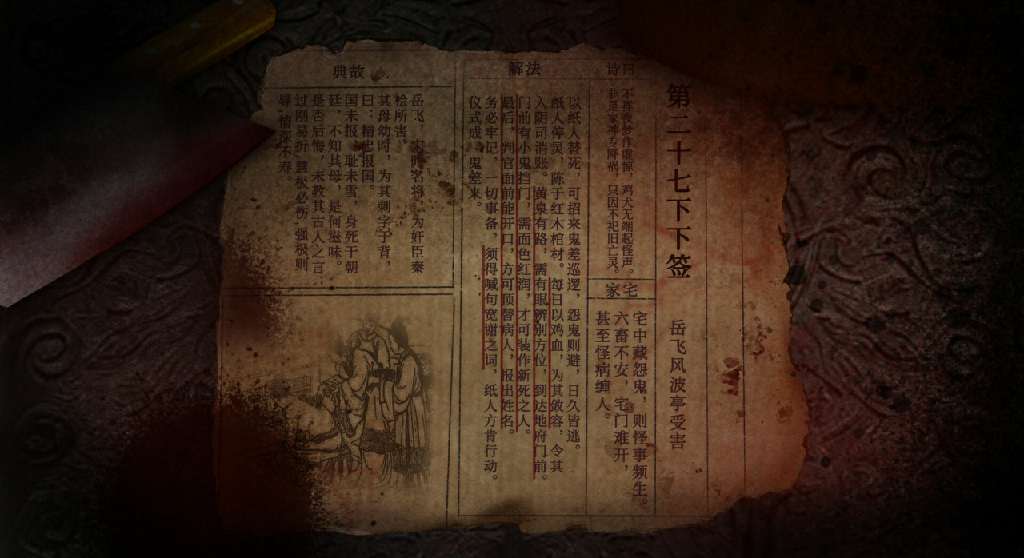 第二十七下下签 岳飞风波亭受害
诗曰
鸡犬无端起怪声。
只因不祀旧亡灵。
家宅
宅中藏怨鬼，则怪事频生。
六畜不安，宅门难开，
甚至怪病缠人。
解法
以纸人替死，可招来鬼差巡逻，怨鬼则避，日久皆逃。
纸人停灵，陈于红木棺材。每日以鸡血，为其敛容，令其
入阴司消账。黄泉有路，需有眼辨别方位，到达地府门前。
门前有小鬼挡门，需面色红润，才可装作新死之人。
最后，判官面前能开口，方可顶替病人，报出姓名。
务必牢记，一切事备，须得喊句宽谢之词，纸人方肯行动。
仪式成，鬼差来。
典故
岳飞，宋时名将，为奸臣秦
桧所害，
其母幼时，为其刺字于背，
曰：精忠报国。
国未报，耻未雪，身死于朝
廷，不知其母，是何滋味。
是否后悔，未教其古人之言：
过刚易折，慧极必伤，强极则
辱，情深不寿。